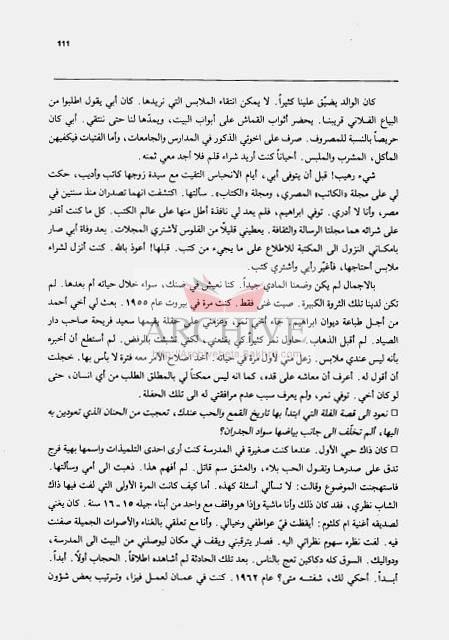 ١١١
كان الوالد يضيّق علينا كثيراً. لا يمكن انتقاء الملابس التي نريدها. كان أبي يقول اطلبوا من
البياع الفلاني قريبنا. يحضر أثواب القماش على أبواب البيت، ويمدّها لنا حتى ننتقي. أبي كان
حريصاً بالنسبة للمصروف. صرف على اخوتي الذكور في المدارس والجامعات، وأما الفتيات فيكفيهن
المأكل، المشرب والملبس. أحياناً كنت أريد شراء قلم فلا أجد معي ثمنه.
شيء رهيب! قبل أن يتوفى أبي، أيام الانحباس التقيت مع سيدة زوجها كاتب وأديب، حكت
لي على مجلة «الكاتب» المصري، ومجلة «الكتاب». سألتها. اكتشفت انهما تصدران منذ سنتين في
مصر، وأنا لا أدري. توفي ابراهيم، فلم يعد لي نافذة أطل منها على عالم الكتب. كل ما كنت أقدر
على شرائه هما مجلتا الرسالة والثقافة. يعطيني قليلاً من الفلوس لأشتري المجلات. بعد وفاة أبي صار
بامكاني النزول الى المكتبة للاطلاع على ما يجيء من كتب. قبلها! أعوذ بالله. كنت أنزل لشراء
ملابس أحتاجها، فأغيّر رأيي وأشتري كتب.
بالاجمال لم يكن وضعنا المادي جيداً. كنا نعيش في ضنك، سواء خلال حياته أم بعدها. لم
تكن لدينا تلك الثروة الكبيرة. صيت غنى فقط. كنت مرة في بيروت عام ١٩٥٥. بعث لي أخي أحمد
من أجل طباعة ديوان ابراهيم. جاء أخي نمر، وعزمني على حفلة يقيمها سعيد فريحة صاحب دار
الصياد. لم أقبل الذهاب. حاول نمر كثيراً كي يقنعني، لكني تشبثت بالرفض. لم أستطع أن أخبره
بأنه ليس عندي ملابس. زعل مني لأول مرة في حياته. أخذ اصلاح الأمر معه فترة لا بأس بها. خجلت
أن أقول له. أعرف أن معاشه على قده، كما انه ليس ممكناً لي بالمطلق الطلب من أي انسان، حتى
لو كان أخي. توفي نمر، ولم يعرف سبب عدم مرافقتي له الى تلك الحفلة.
□ نعود الى قصة الفلة التي ابتدأ بها تاريخ القمع والحب عندك، تعجبت من الحنان الذي تعودين به
اليها، ألم تخلّف الى جانب بياضها سواد الجدران؟
□ كان ذاك حبي الأول. عندما كنت صغيرة في المدرسة كنت أرى احدى التلميذات واسمها بهية فرج
تدق على صدرها وتقول الحب بلاء، والعشق سم قاتل. لم أفهم هذا. ذهبت الى أمي وسألتها.
فاستهجنت الموضوع وقالت: لا تسألي أسئلة كهذه. أما كيف كانت المرة الأولى التي لفت فيها ذاك
الشاب نظري، فقد كان ذلك وأنا ماشية وإذا هو واقف مع واحد من أبناء جيله ١٥ ــ ١٦ سنة. كان يغني
لصديقه أغنية ام كلثوم: أيقظت فيّ عواطفي وخيالي. وأنا مع تعلقي بالغناء والأصوات الجميلة صفنت
فيه. لفت نظره سهوم نظراتي اليه. فصار يترقبني ويقف في مكان ليوصلني من البيت الى المدرسة،
ودواليك. السوق كله دكاكين تعج بالناس. بعد تلك الحادثة لم أشاهده اطلاقاً. الحجاب أولاً. أبداً.
أبـداً. أحكي لك، شفتـه متى؟ عام ١٩٦٢. كنت في عمـان لعمـل فيزا، وترتيب بعض شؤون
ARCHIVE